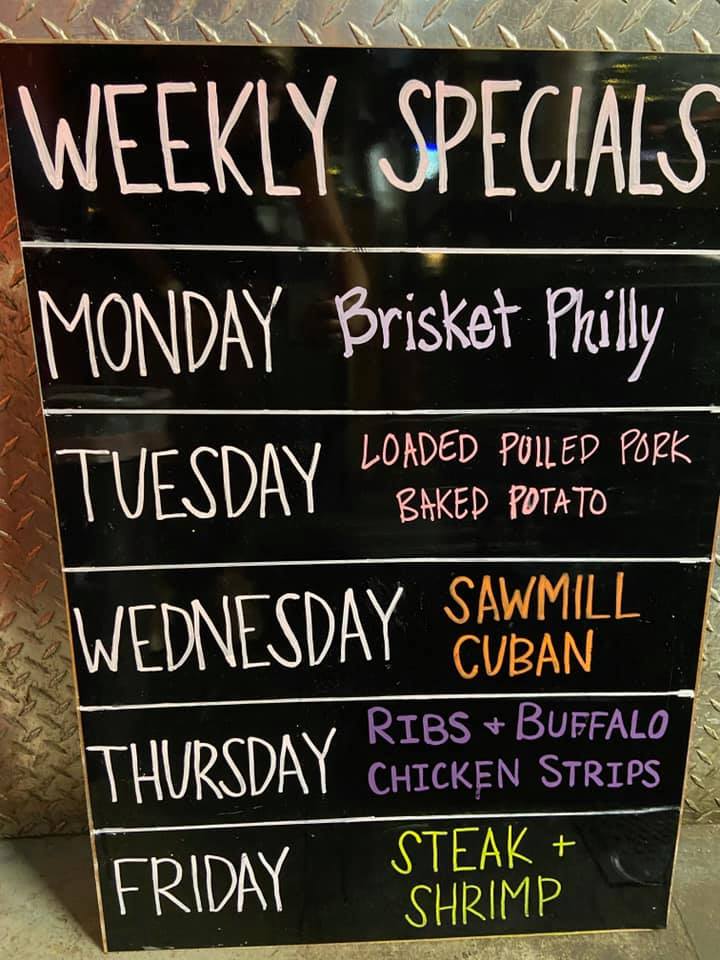 WEEKLY SPECIALS
MONDAY Brisket Philly
TUESDAY LOADED PULLED PORK
BAKED POTATO
WEDNESDAY SAWMILL
CUBAN
THURSDAY RIBS + BUFFALO
CHICKEN STRIPS
FRIDAY STEAK +
SHRIMP